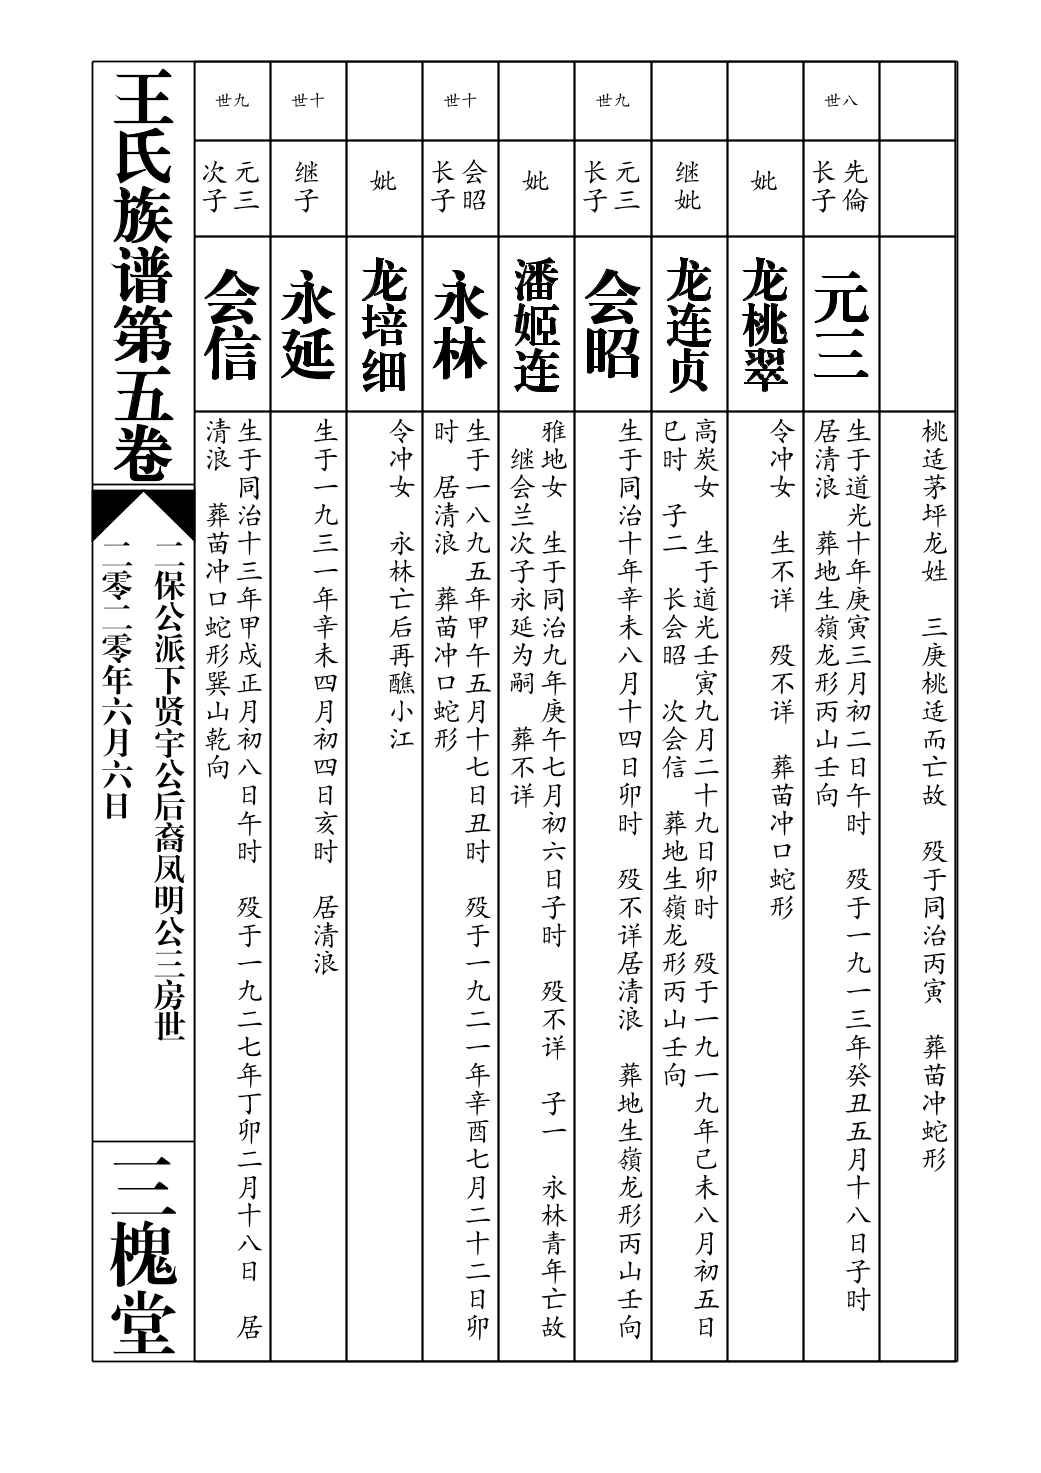 桃适茅坪龙姓　三庚桃适而亡故　殁于同治丙寅　葬苗冲蛇形
八世
先倫
长子
元三
生于道光十年庚寅三月初二日午时　殁于一九一三年癸丑五月十八日子时
居清浪　葬地生嶺龙形丙山壬向
妣
龙桃翠
令冲女　生不详　殁不详　葬苗冲口蛇形
继妣
龙连贞
高炭女　生于道光壬寅九月二十九日卯时　殁于一九一九年己未八月初五日
巳时　子二　长会昭　次会信　葬地生嶺龙形丙山壬向
九世
元三
长子
会昭
生于同治十年辛未八月十四日卯时　殁不详居清浪　葬地生嶺龙形丙山壬向
妣
潘姬连
雅地女　生于同治九年庚午七月初六日子时　殁不详　子一　永林青年亡故
继会兰次子永延为嗣　葬不详
十世
会昭
长子
永林
生于一八九五年甲午五月十七日丑时　殁于一九二一年辛酉七月二十二日卯
时　居清浪　葬苗冲口蛇形
妣
龙培细
令冲女　永林亡后再醮小江
十世
继子
永延
生于一九三一年辛未四月初四日亥时　居清浪
九世
元三
次子
会信
生于同治十三年甲戌正月初八日午时　殁于一九二七年丁卯二月十八日　居
清浪　葬苗冲口蛇形巽山乾向
王氏族谱第五卷
二保公派下贤宇公后裔凤明公三房世
二零二零年六月六日
三槐堂